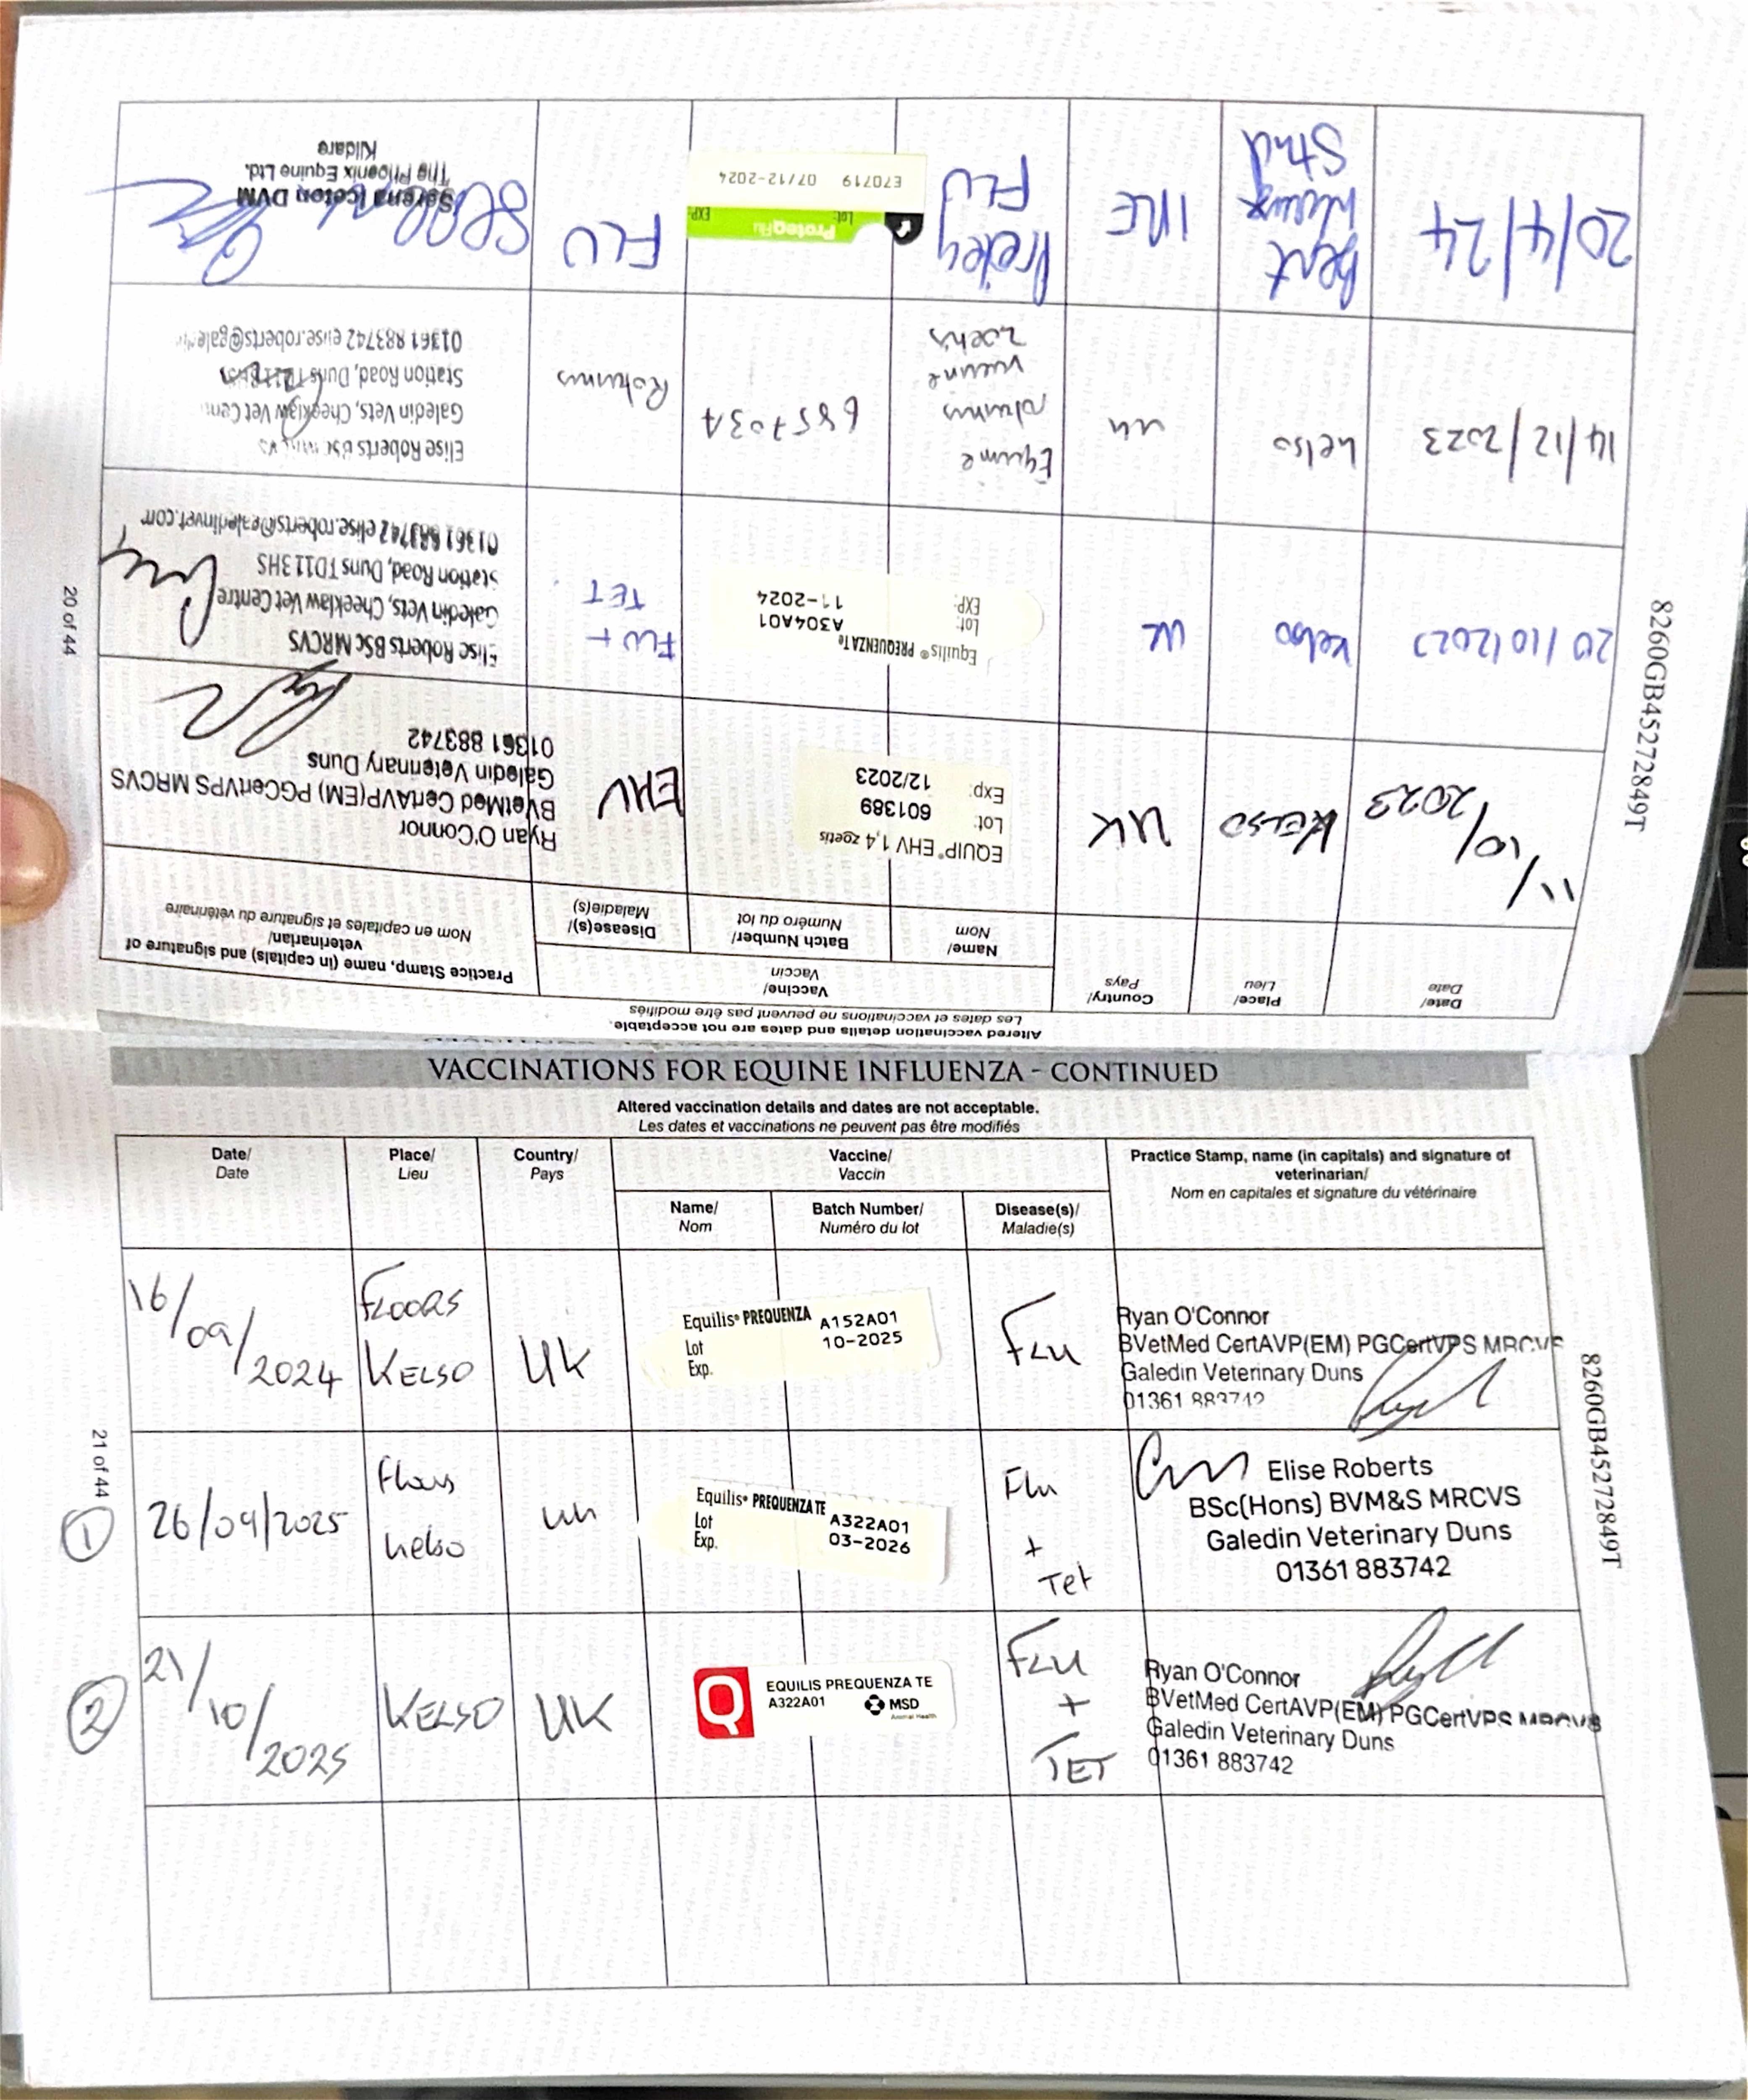 Altered vaccination details and dates are not acceptable.
Les dates et vaccinations ne peuvent pas être modifiés
Date/
Date
Place/
Lieu
Country/
Pays
Vaccine/
Vaccin
Name/
Nom
Batch Number/
Numéro du lot
Disease(s)/
Maladie(s)
Practice Stamp, name (in capitals) and signature of
veterinarian/
Nom en capitales et signature du vétérinaire
11/10/2023
KELSO
UK
EQUIP® EHV 1,4 zoetis
Lot: 601389
Exp: 12/2023
EHV
Ryan O'Connor
BVetMed CertAVP(EM) PGCertVPS MRCVS
Galedin Veterinary Duns
01361 883742
20/10/2023
Kelso
UK
Equilis® PREQUENZA Te
Lot: A304A01
EXP: 11-2024
FLU +
TET
Elise Roberts BSc MRCVS
Galedin Vets, Cheeklaw Vet Centre
Station Road, Duns TD113HS
01361 883742 elise.roberts@galedinvet.com
14/12/2023
Kelso
UK
Equine
rotavirus
vaccine
Zoetis
685703A
Rotavirus
Elise Roberts BSc
Galedin Vets, Cheeklaw Vet Cent
Station Road, Duns
01361 883742 elise.roberts@gale
20/4/24
Stud
IRE
Proteq
FLU
ProteqFlu
Lot: EXP:
E70719 07/12-2024
FLU
Serena Iceton DVM
The Phoenix Equine Ltd.
Kildare
20 of 44
8260GB45272849T
VACCINATIONS FOR EQUINE INFLUENZA - CONTINUED
Altered vaccination details and dates are not acceptable.
Les dates et vaccinations ne peuvent pas être modifiés
Date/
Date
Place/
Lieu
Country/
Pays
Vaccine/
Vaccin
Name/
Nom
Batch Number/
Numéro du lot
Disease(s)/
Maladie(s)
Practice Stamp, name (in capitals) and signature of
veterinarian/
Nom en capitales et signature du vétérinaire
16/09/2024
FLOORS
KELSO
UK
Equilis® PREQUENZA
Lot A152A01
Exp. 10-2025
FLU
Ryan O'Connor
BVetMed CertAVP(EM) PGCertVPS MRCVS
Galedin Veterinary Duns
01361 883742
1
26/09/2025
Floors
Kelso
UK
Equilis® PREQUENZA TE
Lot A322A01
Exp. 03-2026
Flu
+
Tet
Elise Roberts
BSc(Hons) BVM&S MRCVS
Galedin Veterinary Duns
01361 883742
2
21/10/2025
KELSO
UK
Q
EQUILIS PREQUENZA TE
A322A01
MSD
Animal Health
FLU
+
TET
Ryan O'Connor
BVetMed CertAVP(EM) PGCertVPS MRCVS
Galedin Veterinary Duns
01361 883742
21 of 44
8260GB45272849T